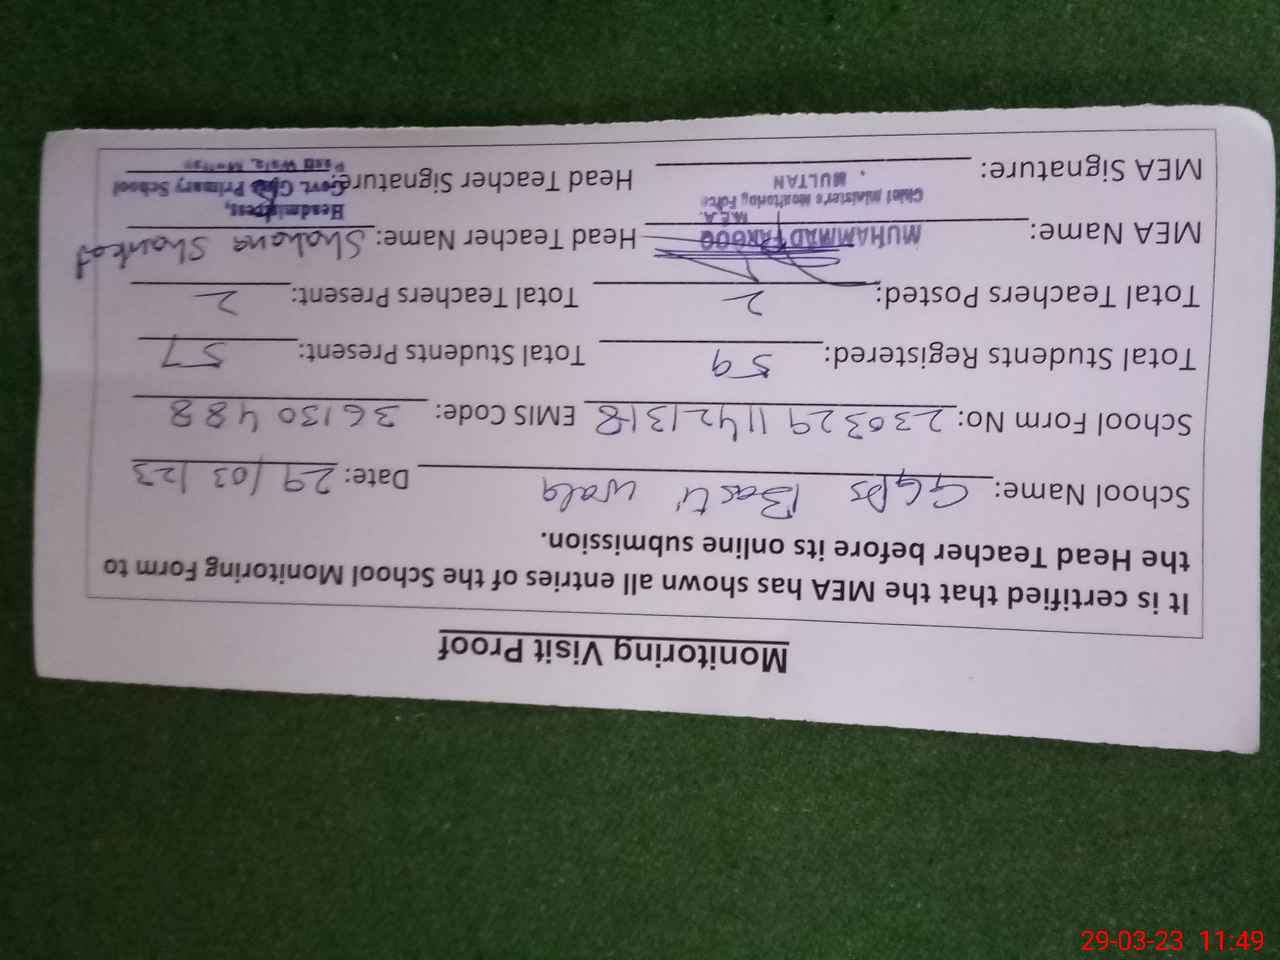 Monitoring Visit Proof
It is certified that the MEA has shown all entries of the School Monitoring Form to
the Head Teacher before its online submission.
School Name: GGPS Basti wala Date: 29/03/23
School Form No: 23032911421318 EMIS Code: 36130488
Total Students Registered: 59 Total Students Present: 57
Total Teachers Posted: 2 Total Teachers Present: 2
MEA Name: MUHAMMAD FAROOQ Head Teacher Name: Shahana Shaukat
M.E.A. Headmistress,
Chief Minister's Monitoring Force Govt. Girls Primary School
MEA Signature: MULTAN Head Teacher Signature: Wala, Multan
29-03-23 11:49